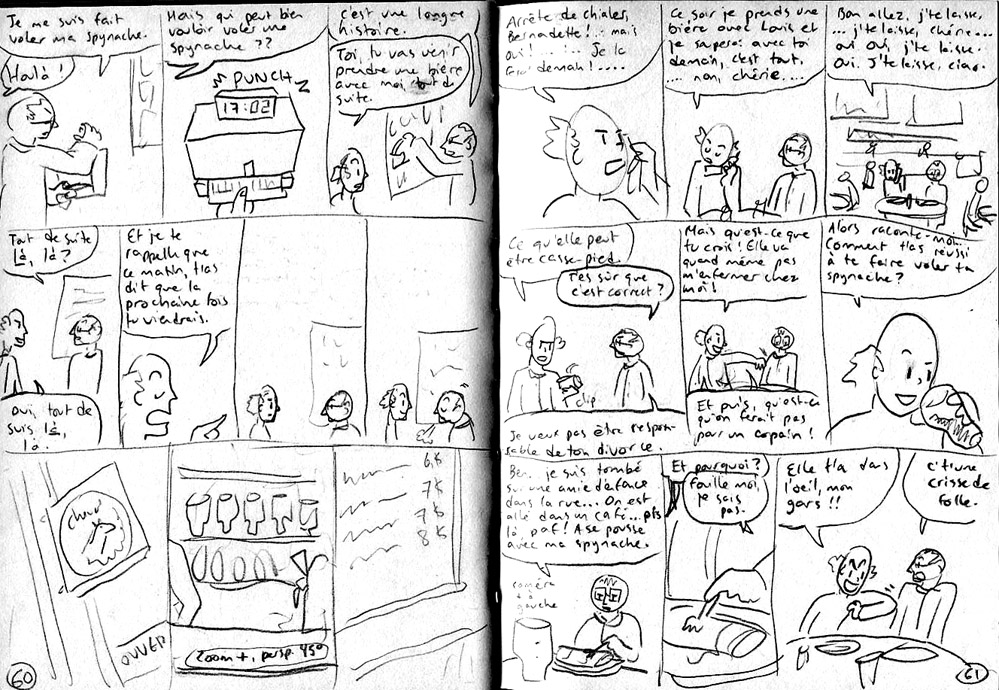 Je me suis fait
voler ma spynache.
Voilà !
Mais qui peut bien
vouloir voler une
spynache ??
PUNCH
17:02
c'est une longue
histoire.
Toi, tu vas venir
prendre une bière
avec moi, tout de
suite.
Tout de suite
là, là ?
Oui, tout de
suis là,
là.
Et je te
rappelle que
ce matin, t'as
dit que la
prochaine fois
tu viendrais.
Chud
OUVER
Zoom +, persp. 45°
6$
7$
7$
8$
60
Arrête de chialer,
Bernadette !... mais
oui !... Je le
demain !....
Ce soir je prends une
bière avec Louis et
je souperai avec toi
demain, c'est tout.
.... non, chérie....
Bon allez, j'te laisse,
... j'te laisse, chérie...
oui oui, j'te laisse.
Oui. J'te laisse, ciao.
Ce qu'elle peut
être casse-pied.
T'es sûr que
c'est correct ?
clip
Je veux pas être respon-
sable de ton divorce.
Mais qu'est-ce que
tu crois ! Elle va
quand même pas
m'enfermer chez
moi !
Et puis, qu'est-ce
qu'on ferait pas
pour un copain !
Alors raconte-moi...
Comment t'as réussi
à te faire voler ta
spynache ?
Ben, je suis tombé
sur une amie d'enface
dans la rue... On est
allé dans un café... pis
là, paf ! A se pousse
avec ma spynache.
caméra
à
gauche
Et pourquoi ?
fouille moi,
je sais
pas.
Elle t'a dans
l'oeil, mon
gars !!
c't'une
crisse de
folle.
61